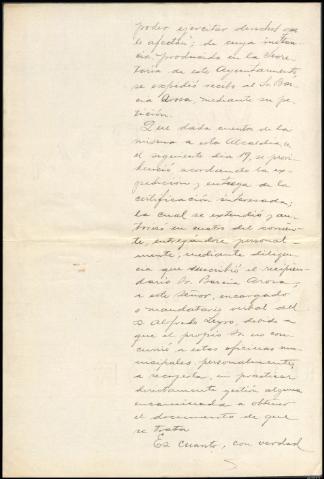 poder ejercitar derechos que
le afectan; de cuya instan-
cia, producida en la Secre-
taria de este Ayuntamiento,
se expidió recibo al Sr. Bar-
cia mediante su pe-
tición.
Que dada cuenta de la
misma a esta Alcaldia, en
el siguiente dia 19, se provi-
denció acordando la ex-
pedición y entrega de la
certificación interesada;
la cual se extendió y au-
torizó en cuatro del corrien-
te, entregándose personal-
mente, mediante diligen-
cia que suscribió el recipien-
dario Sr. Barcia
a este Señor, encargado
o mandatario verbal del
Alfredo debido a
que el propio Sr. no con-
currió a estas oficinas mu-
nicipales, personalmente,
a recogerla, ni practicar
directamente gestión alguna
encaminada a obtener
el documento de que
se trata
Es cuanto, con verdad